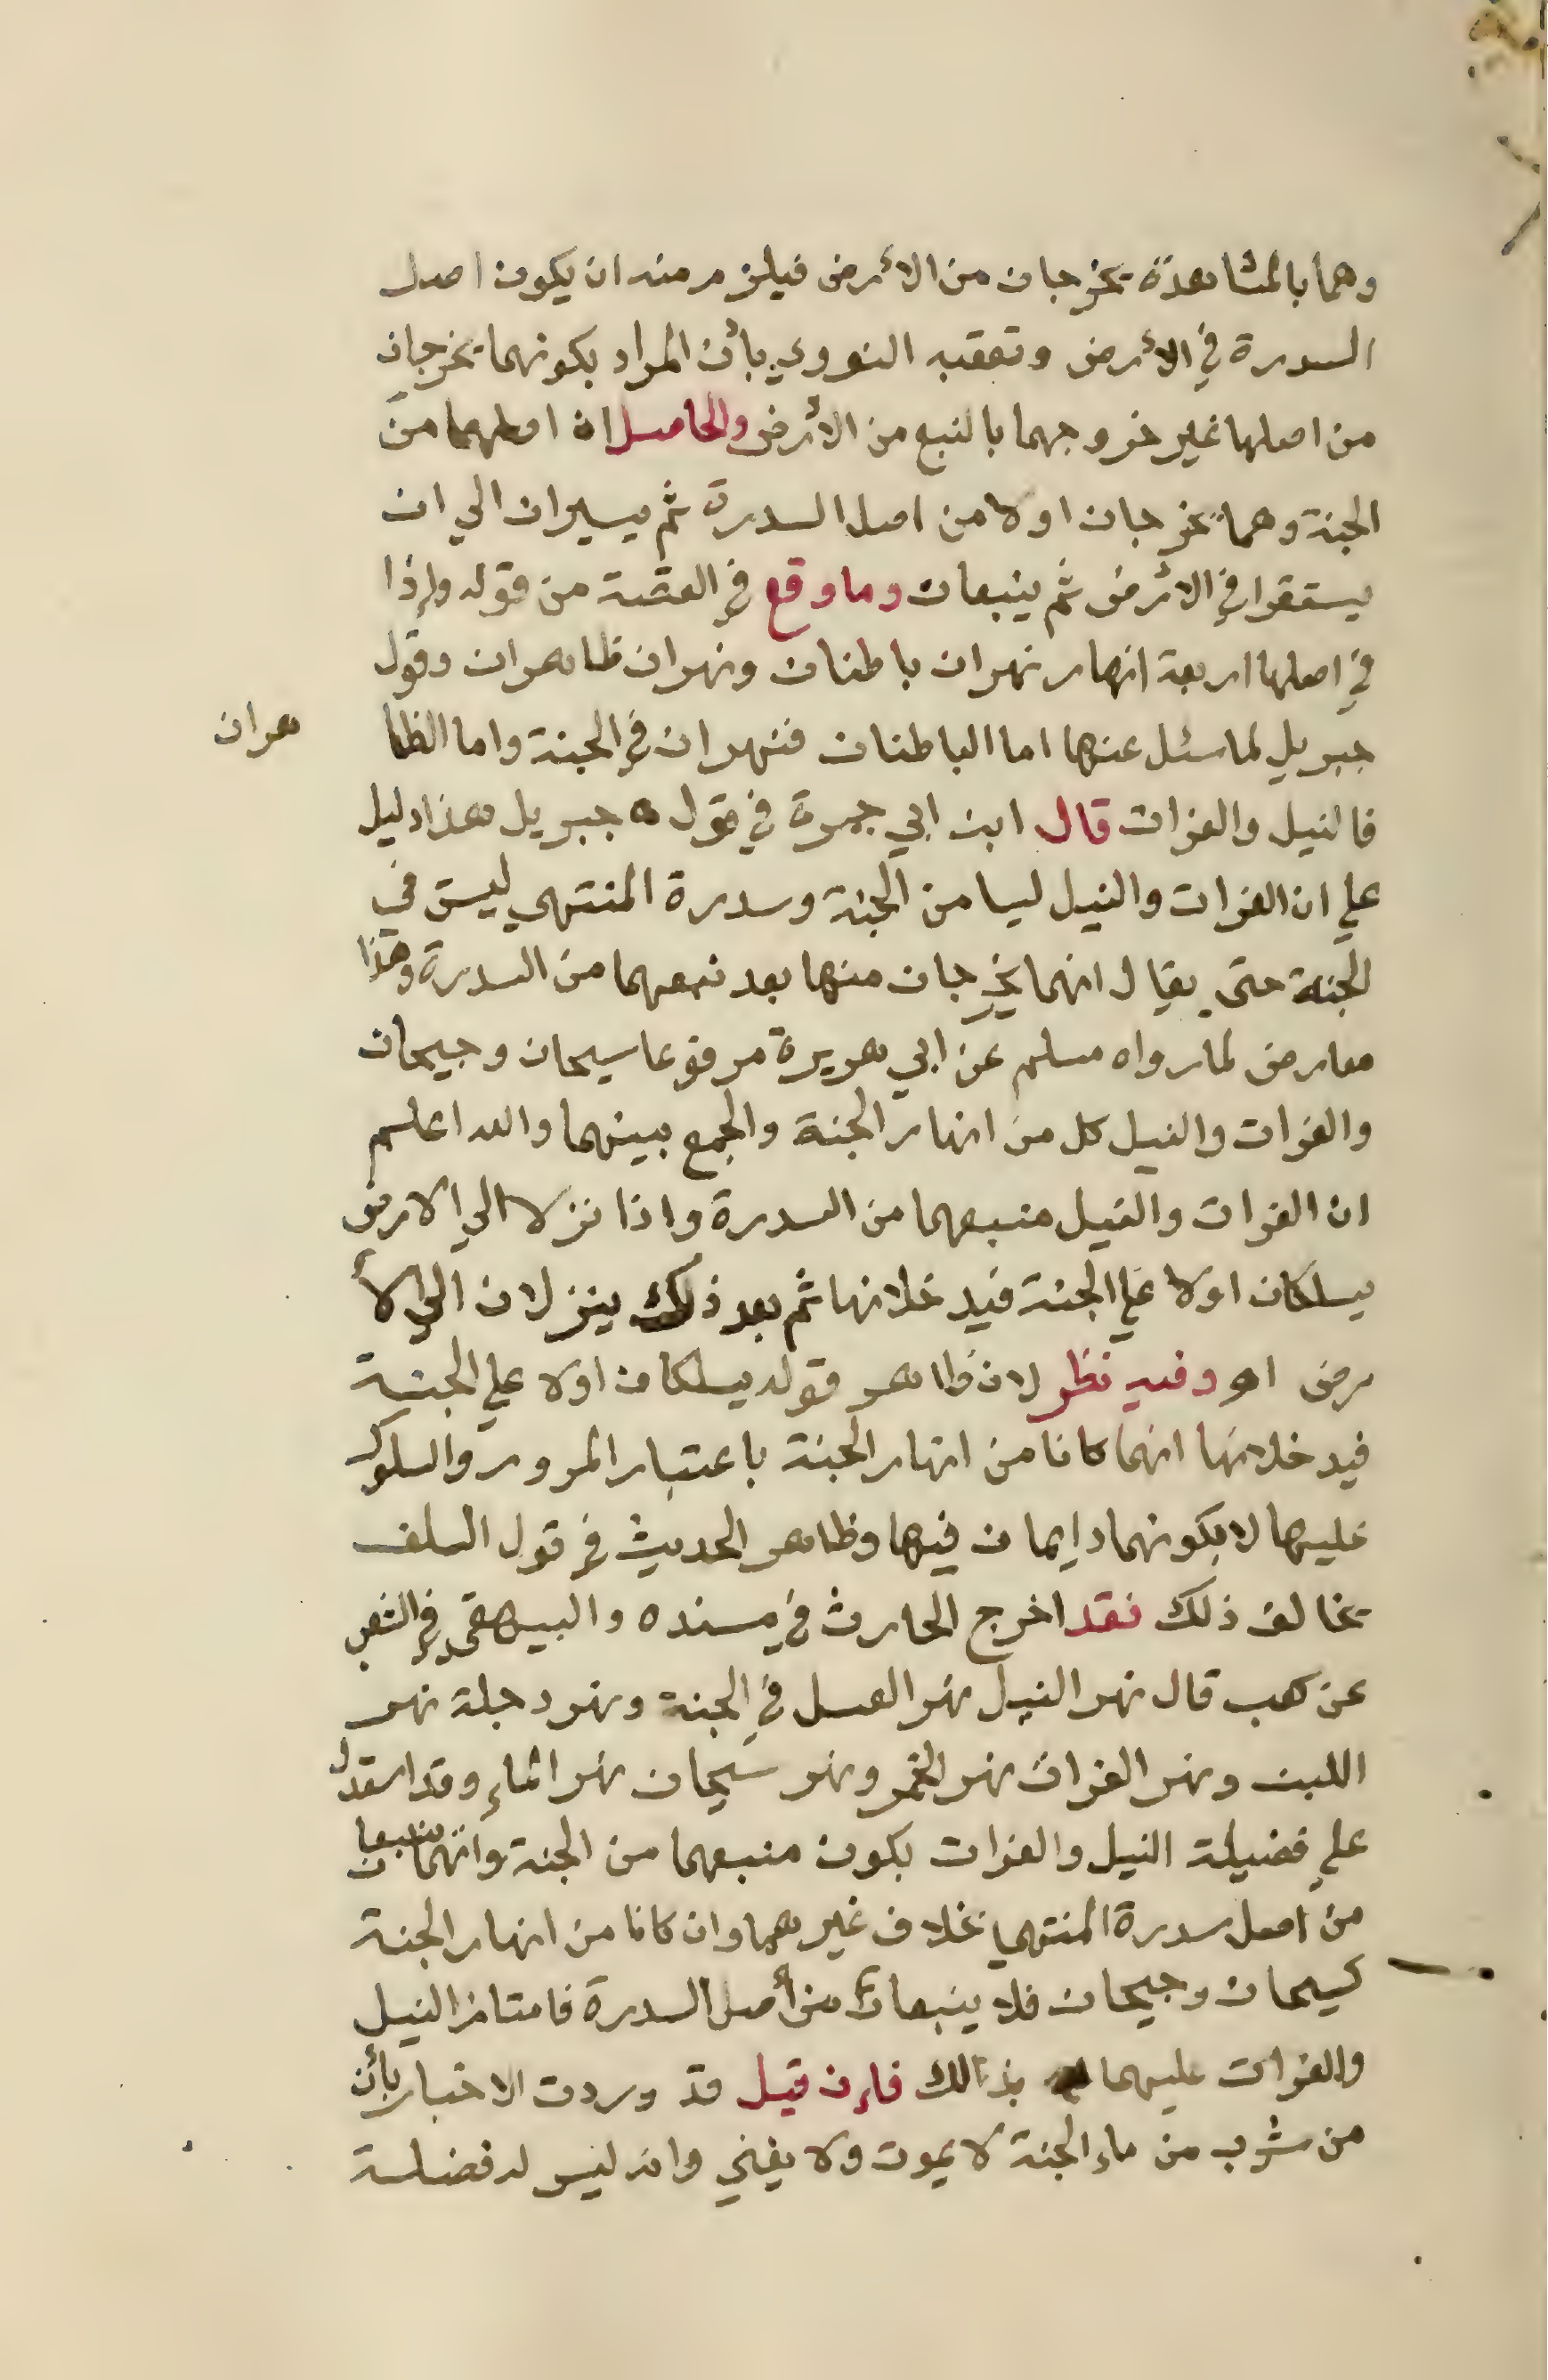 وهما بالمشاهدة يخرجان من الأرض فيلزم منه ان يكون اصل
السدرة في الأرض وتعقبه النووي بأن المراد بكونهما يخرجان
من اصلها غير خروجهما بالنبع من الأرض والحاصل ان اصلهما من
الجنة وهما يخرجان اولا من اصل السدرة ثم يسيران الي ان
يستقرا في الأرض ثم ينبعان وما وقع في القصة من قوله وإذا
في اصلها اربعة انهار نهران باطنان ونهران ظاهران وقول
جبريل لما سئل عنها اما الباطنان فنهران في الجنة واما الظا
هران
فالنيل والفرات قال ابن ابي جمرة في قول جبريل هذا دليل
علي ان الفرات والنيل ليسا من الجنة وسدرة المنتهي ليست في
الجنة حتى يقال انهما يخرجان منها بعد نبعهما من السدرة وهذا
معارض لما رواه مسلم عن ابي هريرة مرفوعا سيحان وجيحان
والفرات والنيل كل من انهار الجنة والجمع بينهما والله اعلم
ان الفرات والنيل منبعهما من السدرة واذا نزلا الي الارض
يسلكان اولا علي الجنة فيدخلانها ثم بعد ذلك ينزلان الي الأ
رض اه وفيه نظر لان ظاهر قوله يسلكان اولا علي الجنة
فيدخلانها انهما كانا من انهار الجنة باعتبار المرور والسلوك
عليها لا بكونهما دايمان فيها وظاهر الحديث في قول السلف
يخالف ذلك فقد اخرج الحارث في مسنده والبيهقي في الشعب
عن كعب قال نهر النيل نهر العسل في الجنة ونهر دجلة نهر
اللبن ونهر الفرات نهر الخمر ونهر سيحان نهر الماء وقد استدل
علي فضيلة النيل والفرات بكون منبعهما من الجنة وانهما ينبعان
من اصل سدرة المنتهي بخلاف غيرهما وان كانا من انهار الجنة
كسيحان وجيحان فلا ينبعان من أصل السدرة فامتاز النيل
والفرات عليهما بذالك فإن قيل قد وردت الاخبار بأن
من شرب من ماء الجنة لا يموت ولا يفني وانه ليس له فضلة